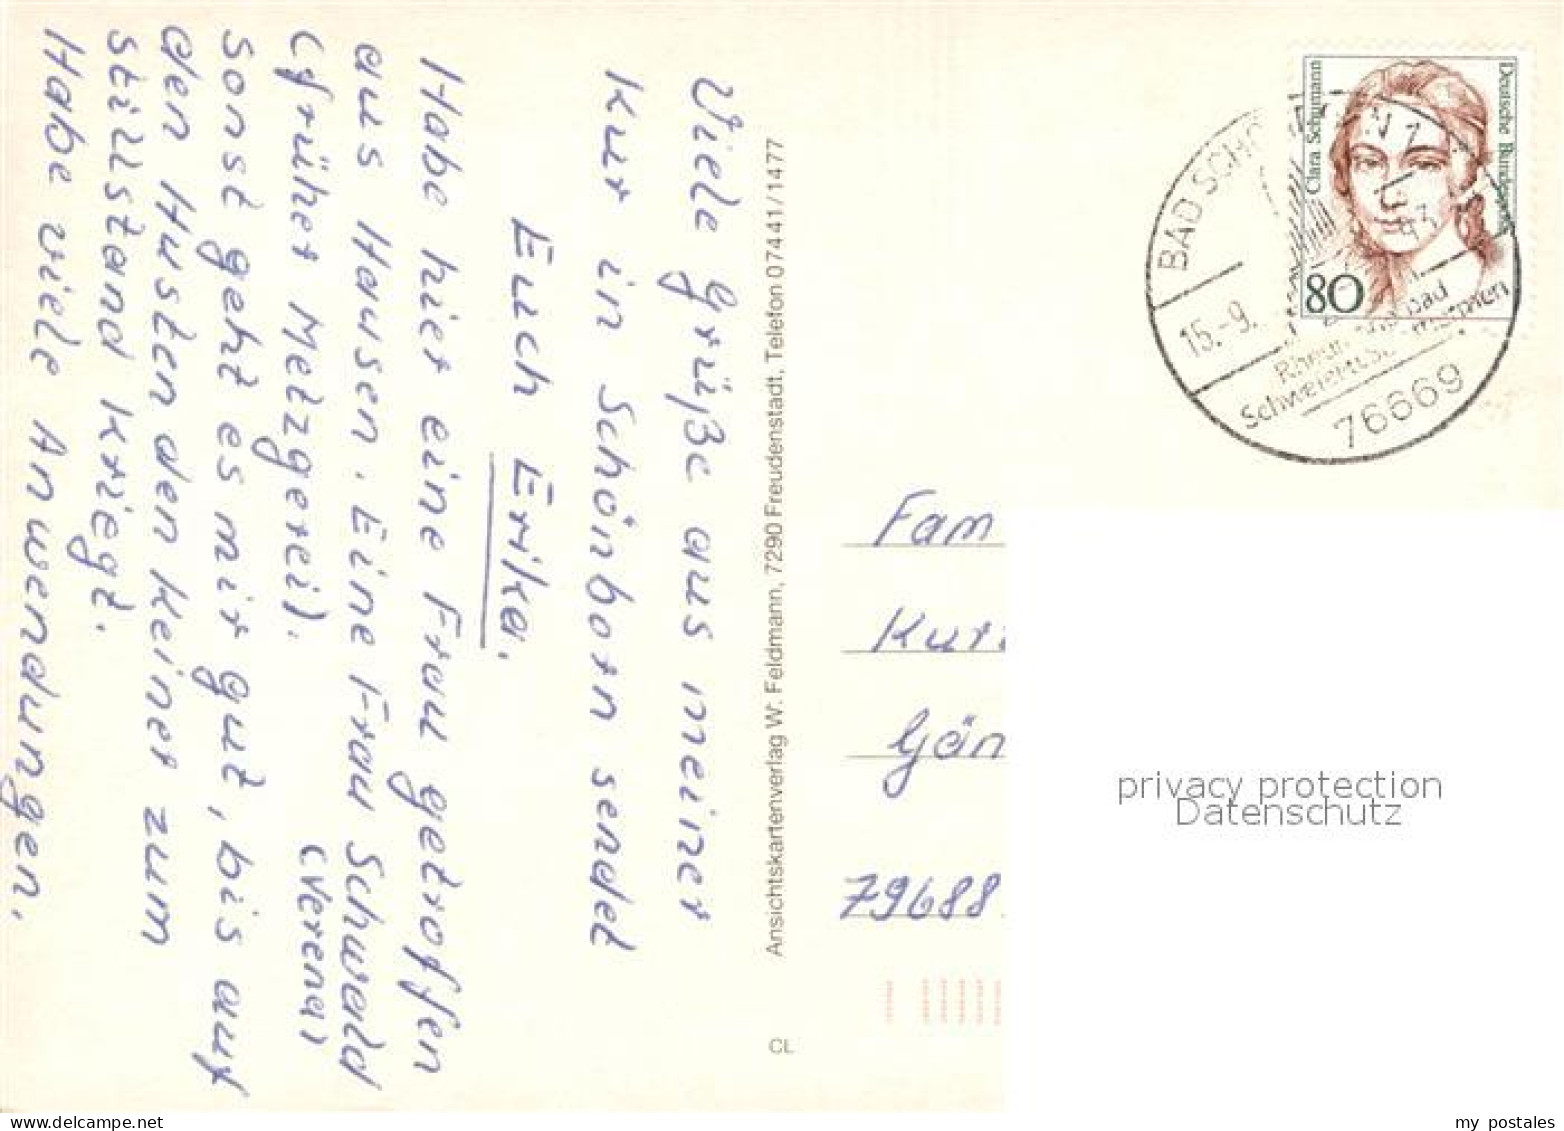 Viele Grüße aus meiner
Kur in Schönborn sendet
Euch Erika.
Habe hier eine Frau getroffen
aus Hausen. Eine Frau Schwald
(Verena)
(früher Metzgerei).
Sonst geht es mir gut, bis auf
den Husten den keiner zum
stillstand kriegt.
Habe viele Anwendungen.
Ansichtskartenverlag W. Feldmann, 7290 Freudenstadt, Telefon 07441/1477
CL
Clara Schumann
Deutsche
80
BAD
15.-9.
76669
Fam
Kur
Gän
79688
privacy protection
Datenschutz
my postales